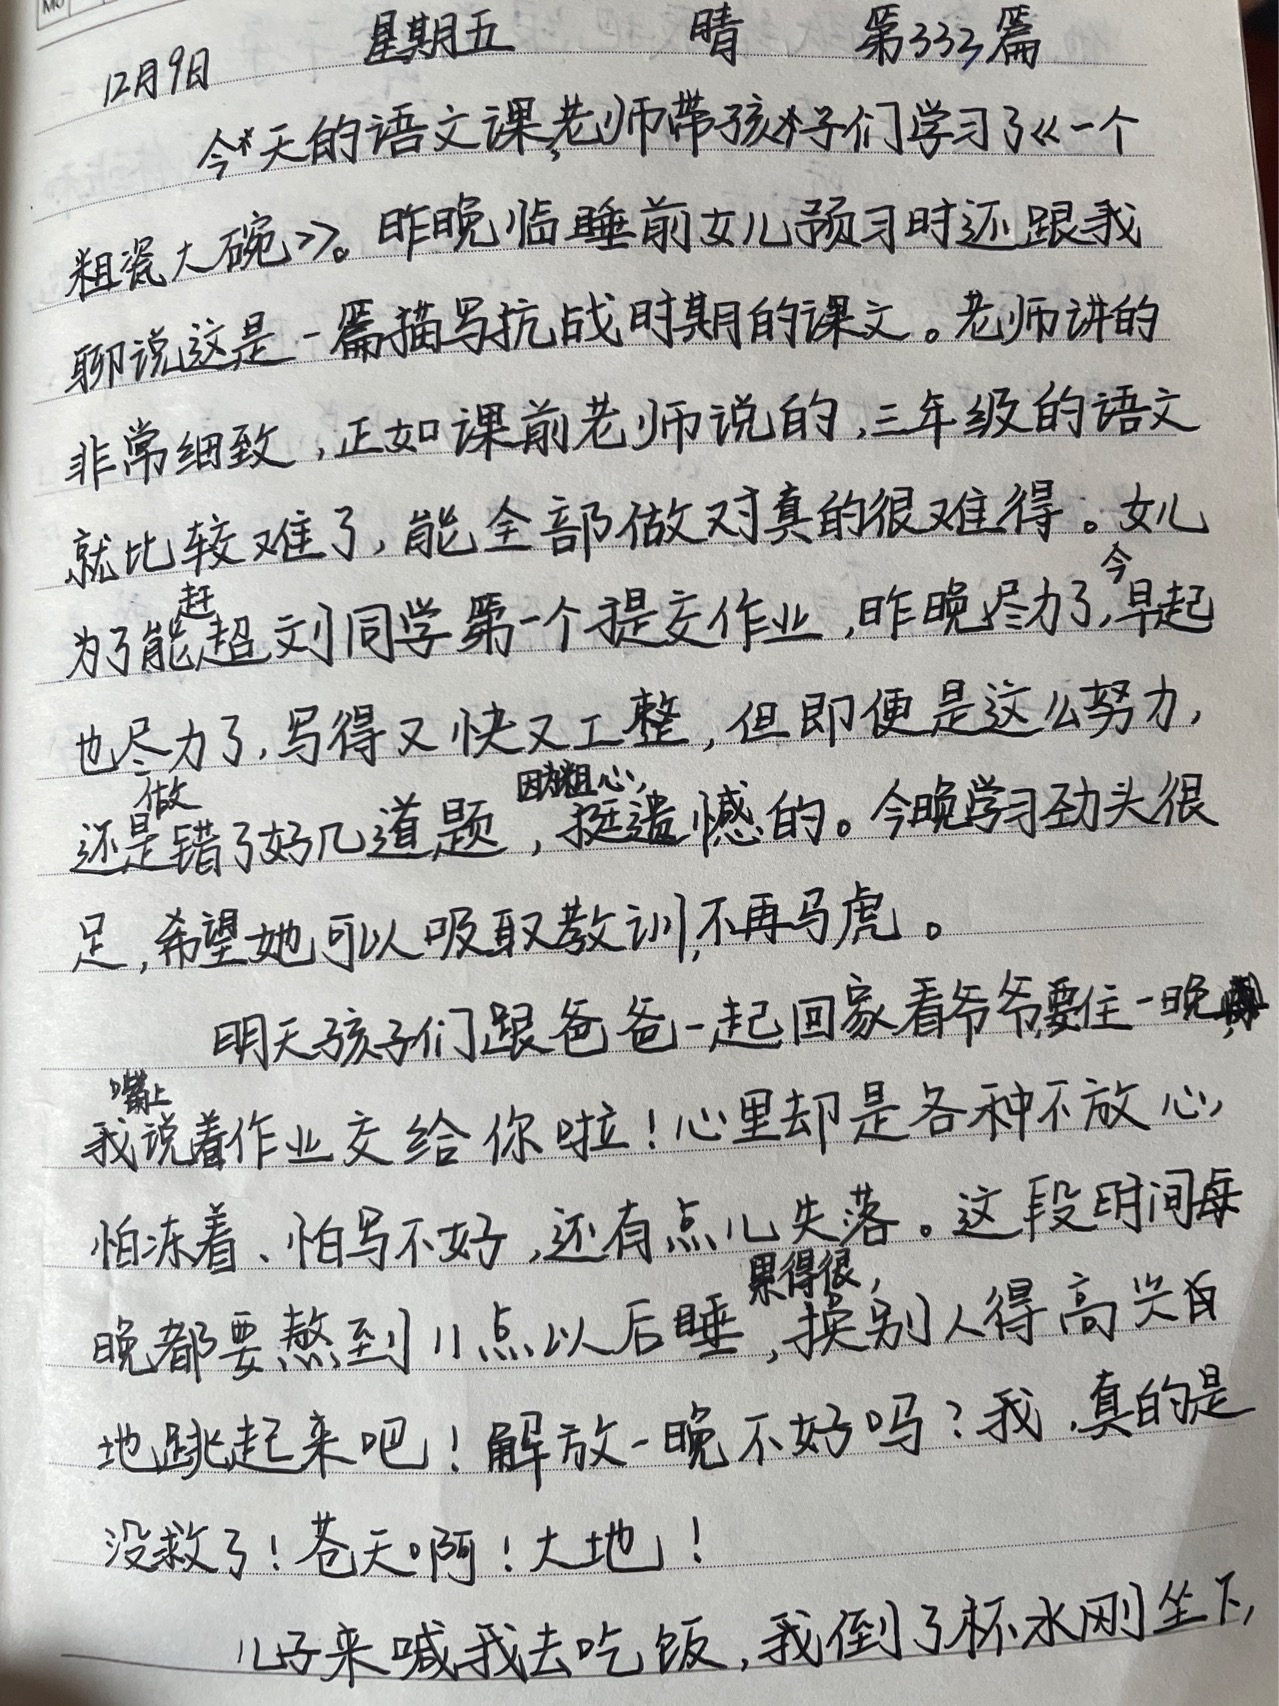 12月9日 星期五 晴 第333篇
今天的语文课,老师带孩子们学习了《一个
粗瓷大碗》。昨晚临睡前女儿预习时还跟我
聊说这是一篇描写抗战时期的课文。老师讲的
非常细致,正如课前老师说的,三年级的语文
就比较难了,能全部做对真的很难得。女儿
为了能赶超刘同学第一个提交作业,昨晚尽力了,今早起
也尽力了,写得又快又工整,但即便是这么努力,
还是做错了好几道题,因为粗心,挺遗憾的。今晚学习劲头很
足,希望她可以吸取教训,不再马虎。
明天孩子们跟爸爸一起回家看爷爷要住一晚,
我嘴上说着作业交给你啦!心里却是各种不放心,
怕冻着、怕写不好,还有点儿失落。这段时间每
晚都要熬到11点以后睡,累得很,换别人得高兴的
地跳起来吧!解放一晚不好吗?我,真的是
没救了!苍天啊!大地!
儿子来喊我去吃饭,我倒了杯水刚坐下,